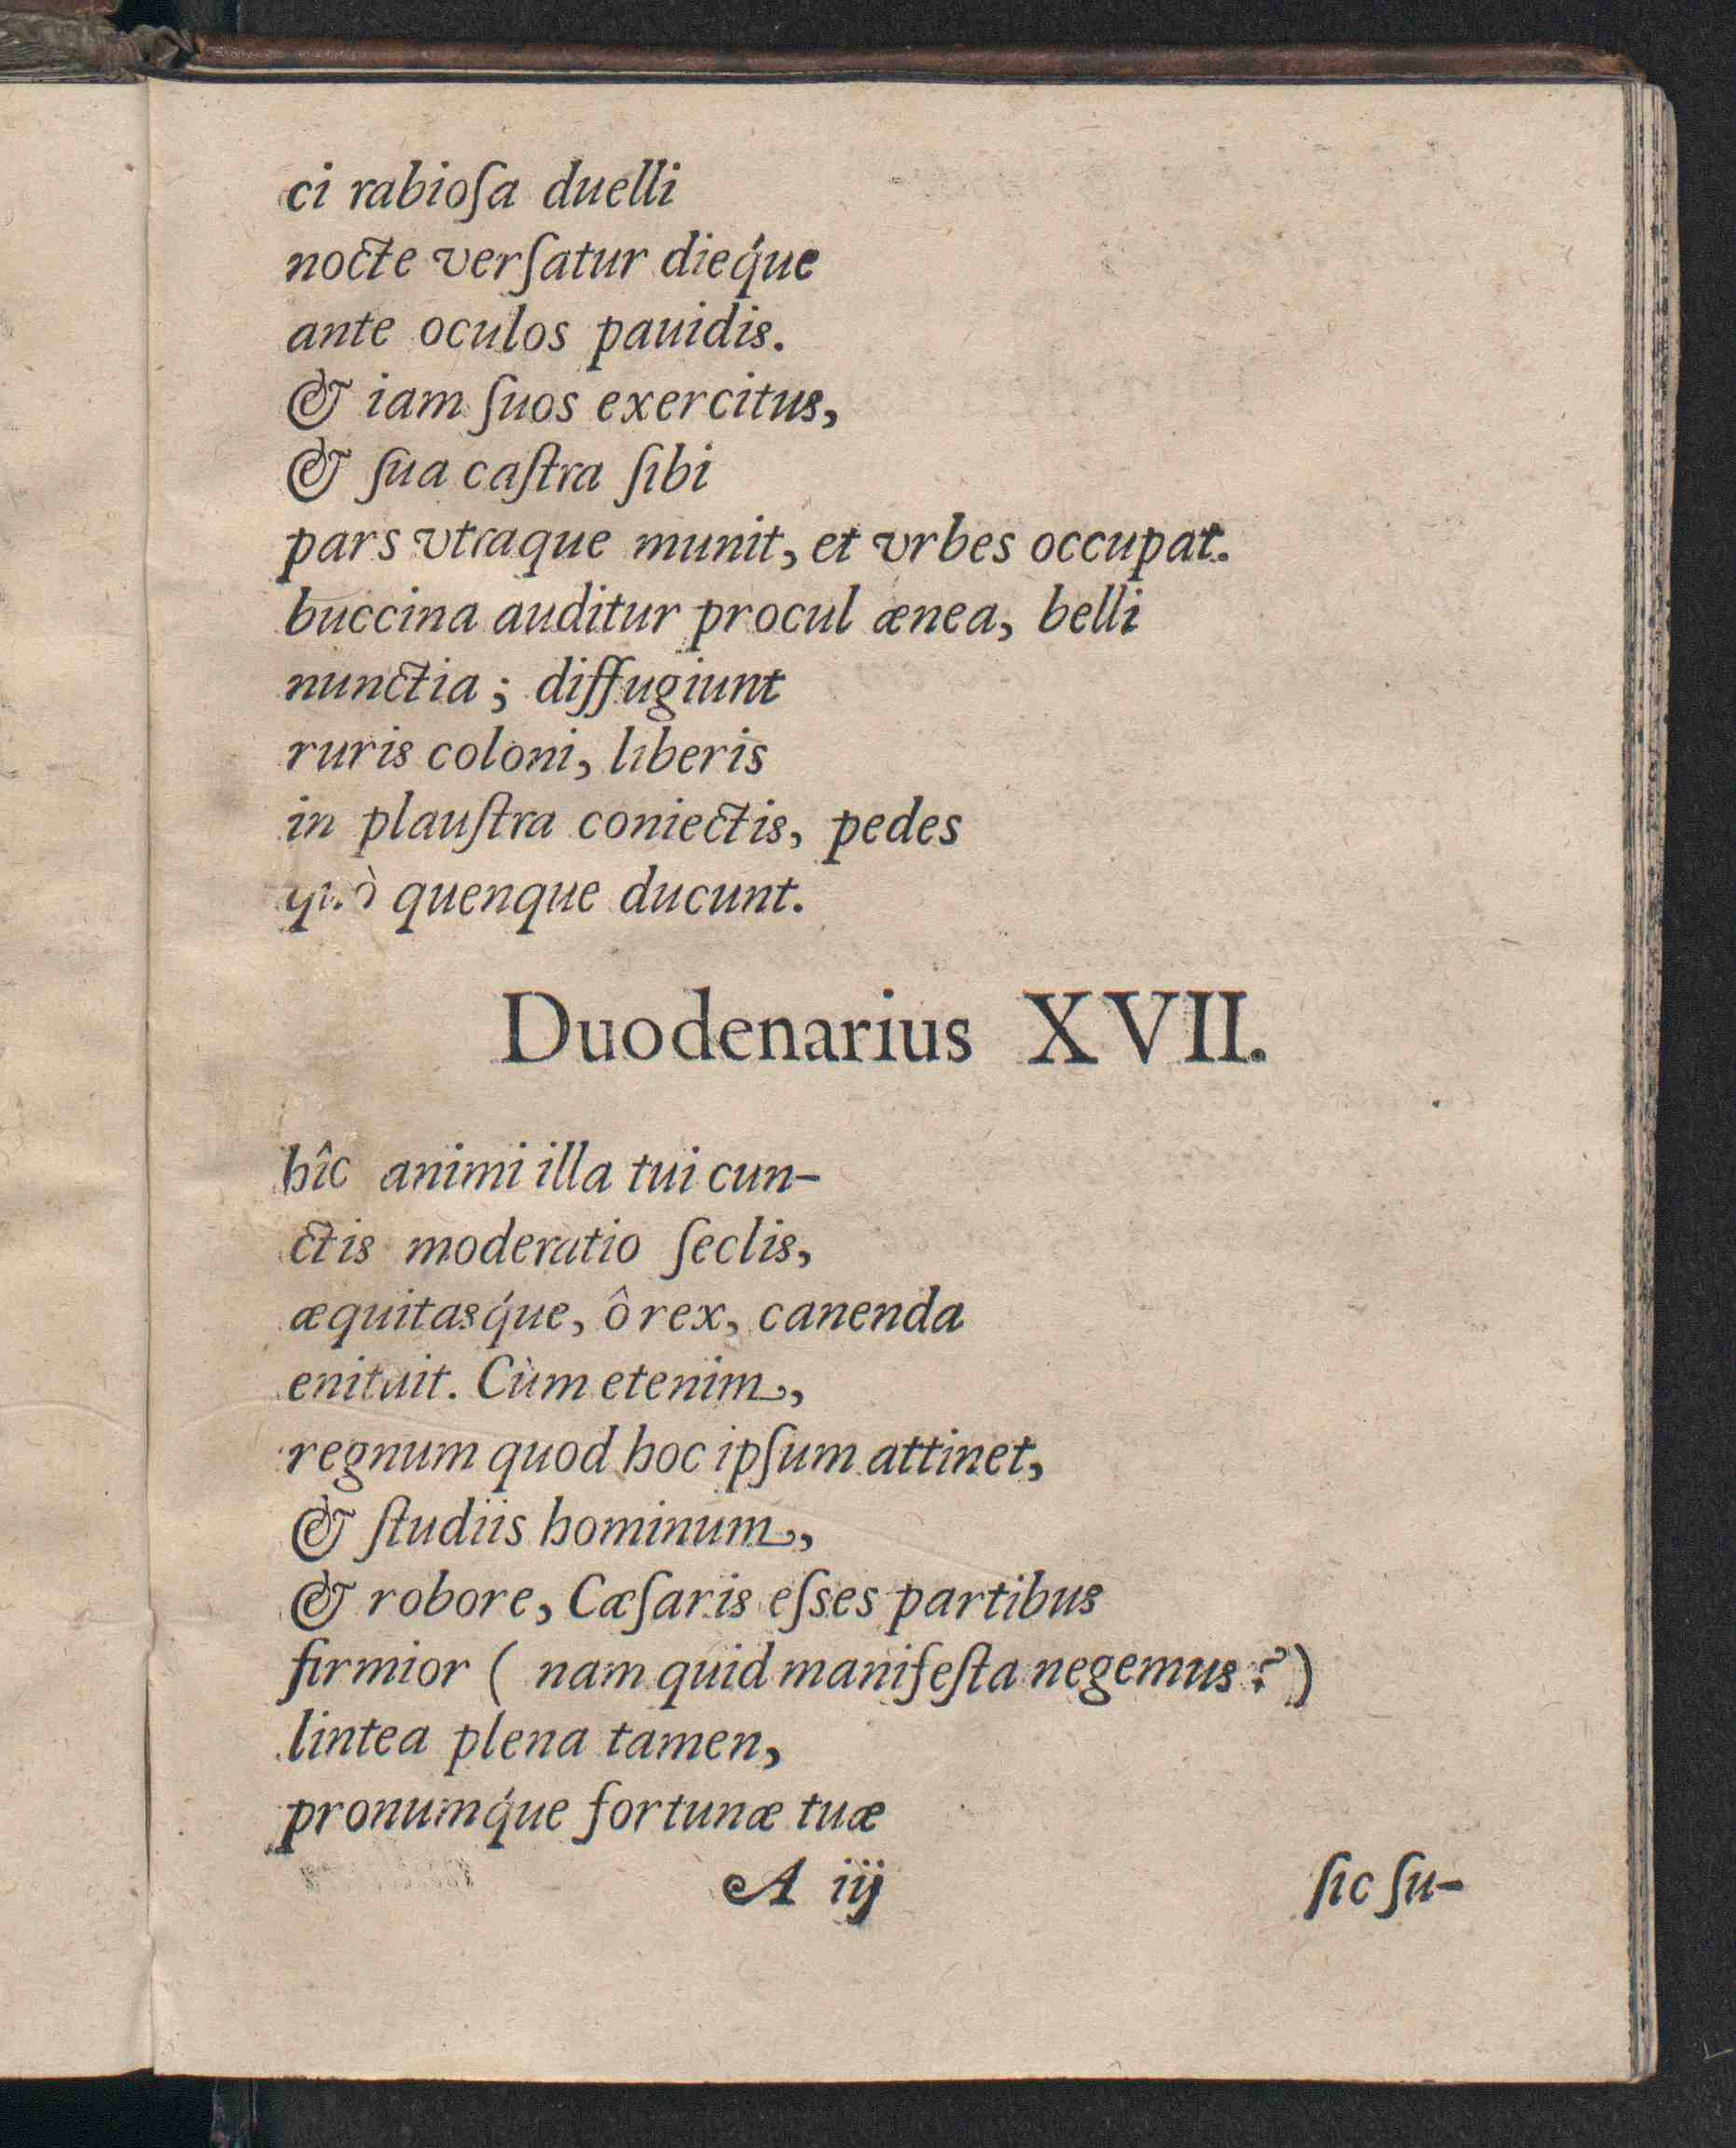 ci rabioſa duelli
nocte verſatur dieq́ue
ante oculos pauidis.
& iam ſuos exercitus,
& ſua caſtra ſibi
pars vtraque munit, et vrbes occupat.
buccina auditur procul ænea, belli
nunctia; diffugiunt
ruris coloni, liberis
in plauſtra coniectis, pedes
quò quenque ducunt.
Duodenarius XVII.
hîc animi illa tui cun-
ctis moderatio ſeclis,
æquitasq́ue, ô rex, canenda
enituit. Cùm etenim,
regnum quod hoc ipſum attinet,
& ſtudiis hominum,
& robore, Cæſaris eſses partibus
firmior ( nam quid manifeſta negemus?)
lintea plena tamen,
pronumq́ue fortunæ tuæ
A iij ſic ſu-